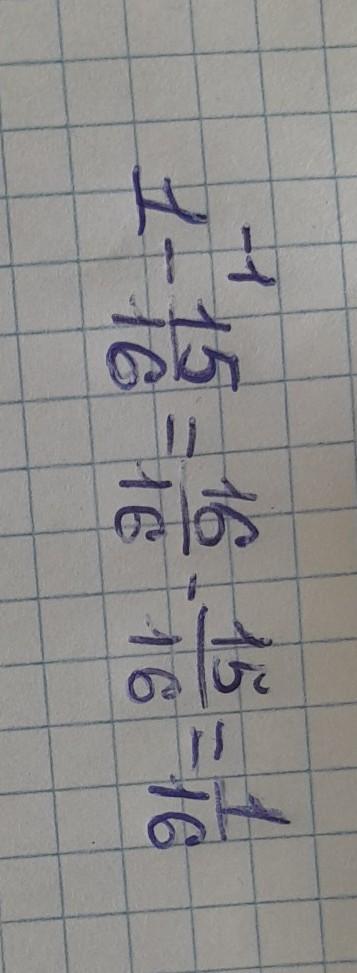 -1
1 - 15/16 = 16/16 - 15/16 = 1/16